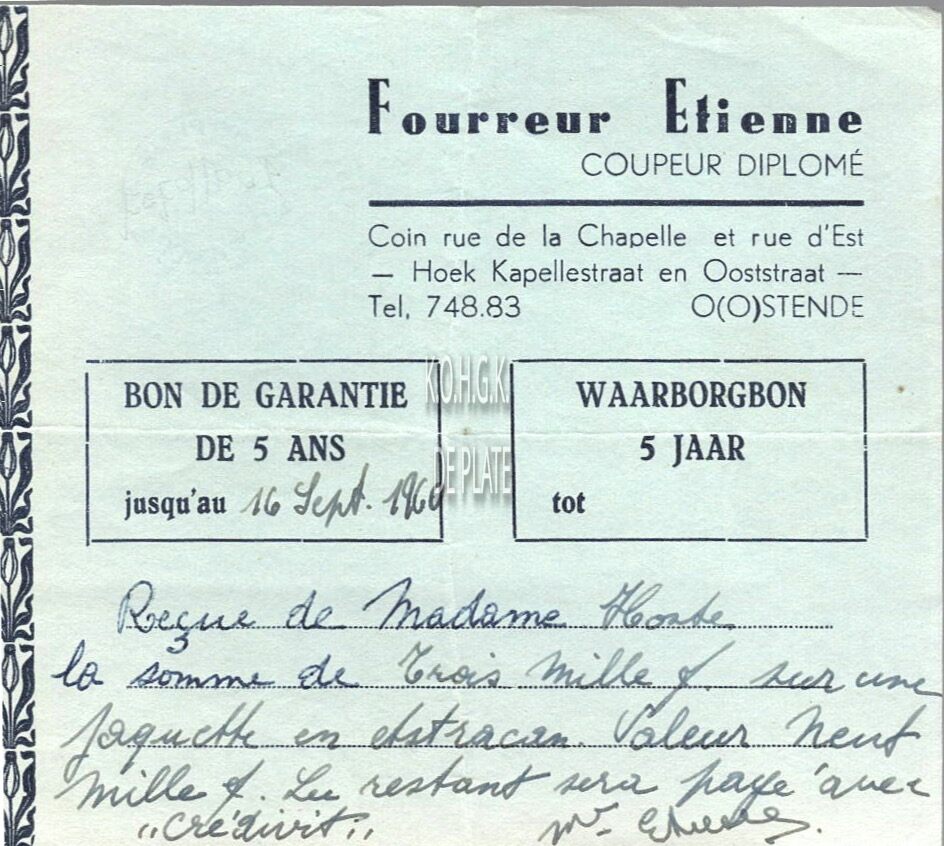 Fourreur Etienne
COUPEUR DIPLOMÉ
Coin rue de la Chapelle et rue d'Est
— Hoek Kapellestraat en Ooststraat —
Tel, 748.83 O(O)STENDE
K.O.H.G.K.
DE PLATE
BON DE GARANTIE
DE 5 ANS
jusqu'au 16 Sept. 1960
WAARBORGBON
5 JAAR
tot
Reçue de Madame Hoste
la somme de Trois Mille f. sur une
jaquette en Astracan. Valeur Neuf
Mille f. Le restant sera payé avec
„Crédivit„